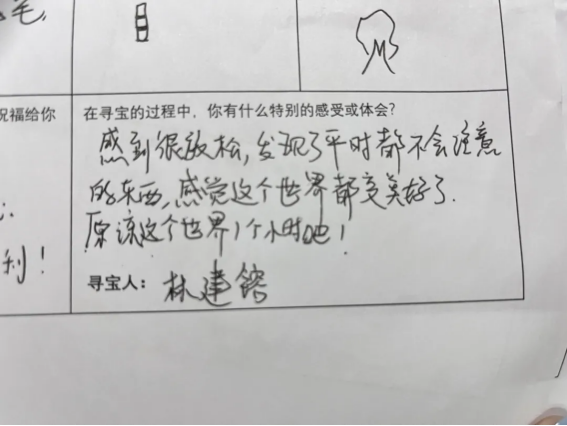 笔,
祝福给你
在寻宝的过程中，你有什么特别的感受或体会?
感到很放松,发现了平时都不会注意
的东西,感觉这个世界都变美好了.
原谅这个世界1个小时吧!
利!
寻宝人：林建